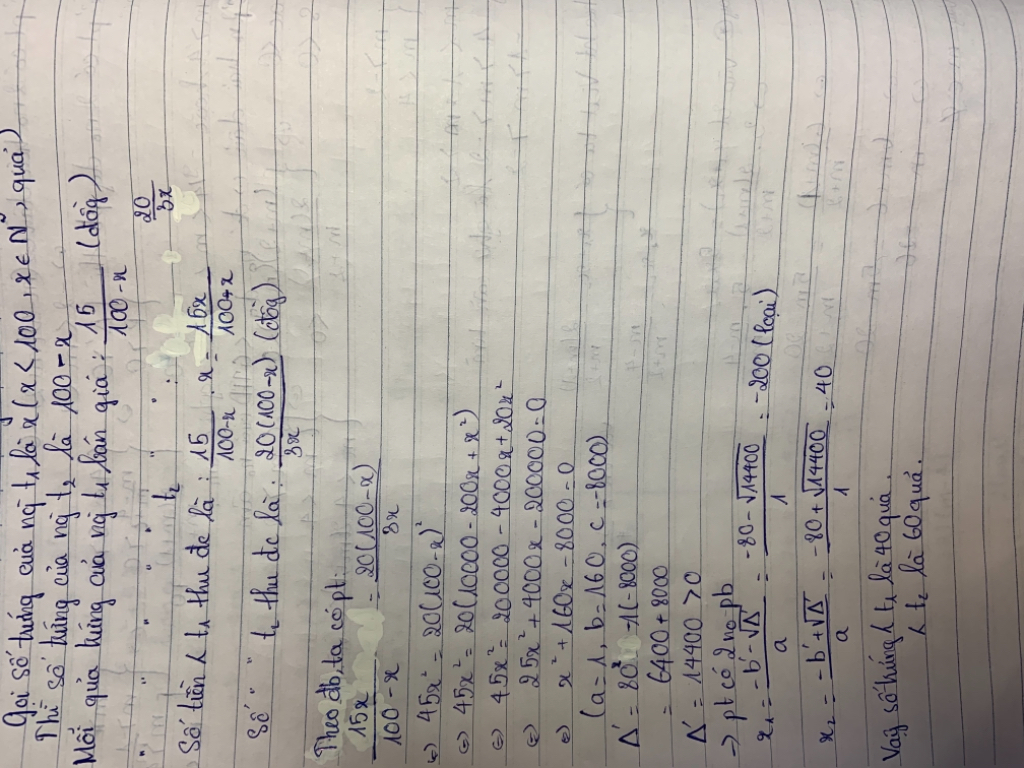 Gọi số trứng của ng t₁ là x (x < 100, x ∈ N*, quả)
Thì số trứng của ng t₂ là 100 - x
Mỗi quả trứng của ng t₁ bán giá: 15/(100 - x) (đồng)
" " " " " t₂ " " : 20/3x
Số tiền ng t₁ thu đc là : 15/(100-x) . x = 15x/(100-x)
Số " " t₂ thu đc là : 20(100-x)/3x (đồng)
Theo đb, ta có pt:
15x/(100-x) = 20(100-x)/3x
⇔ 45x² = 20(100-x)²
⇔ 45x² = 20(10000 - 200x + x²)
⇔ 45x² = 200000 - 4000x + 20x²
⇔ 25x² + 4000x - 200000 = 0
⇔ x² + 160x - 8000 = 0
(a = 1, b = 160, c = -8000)
Δ' = 80² - 1(-8000)
= 6400 + 8000
Δ' = 14400 > 0
→ pt có 2 no pb
x₁ = (-b' - √Δ')/a = (-80 - √14400)/1 = -200 (loại)
x₂ = (-b' + √Δ')/a = (-80 + √14400)/1 = 40
Vậy số trứng t₁ là 40 quả.
t₂ là 60 quả.